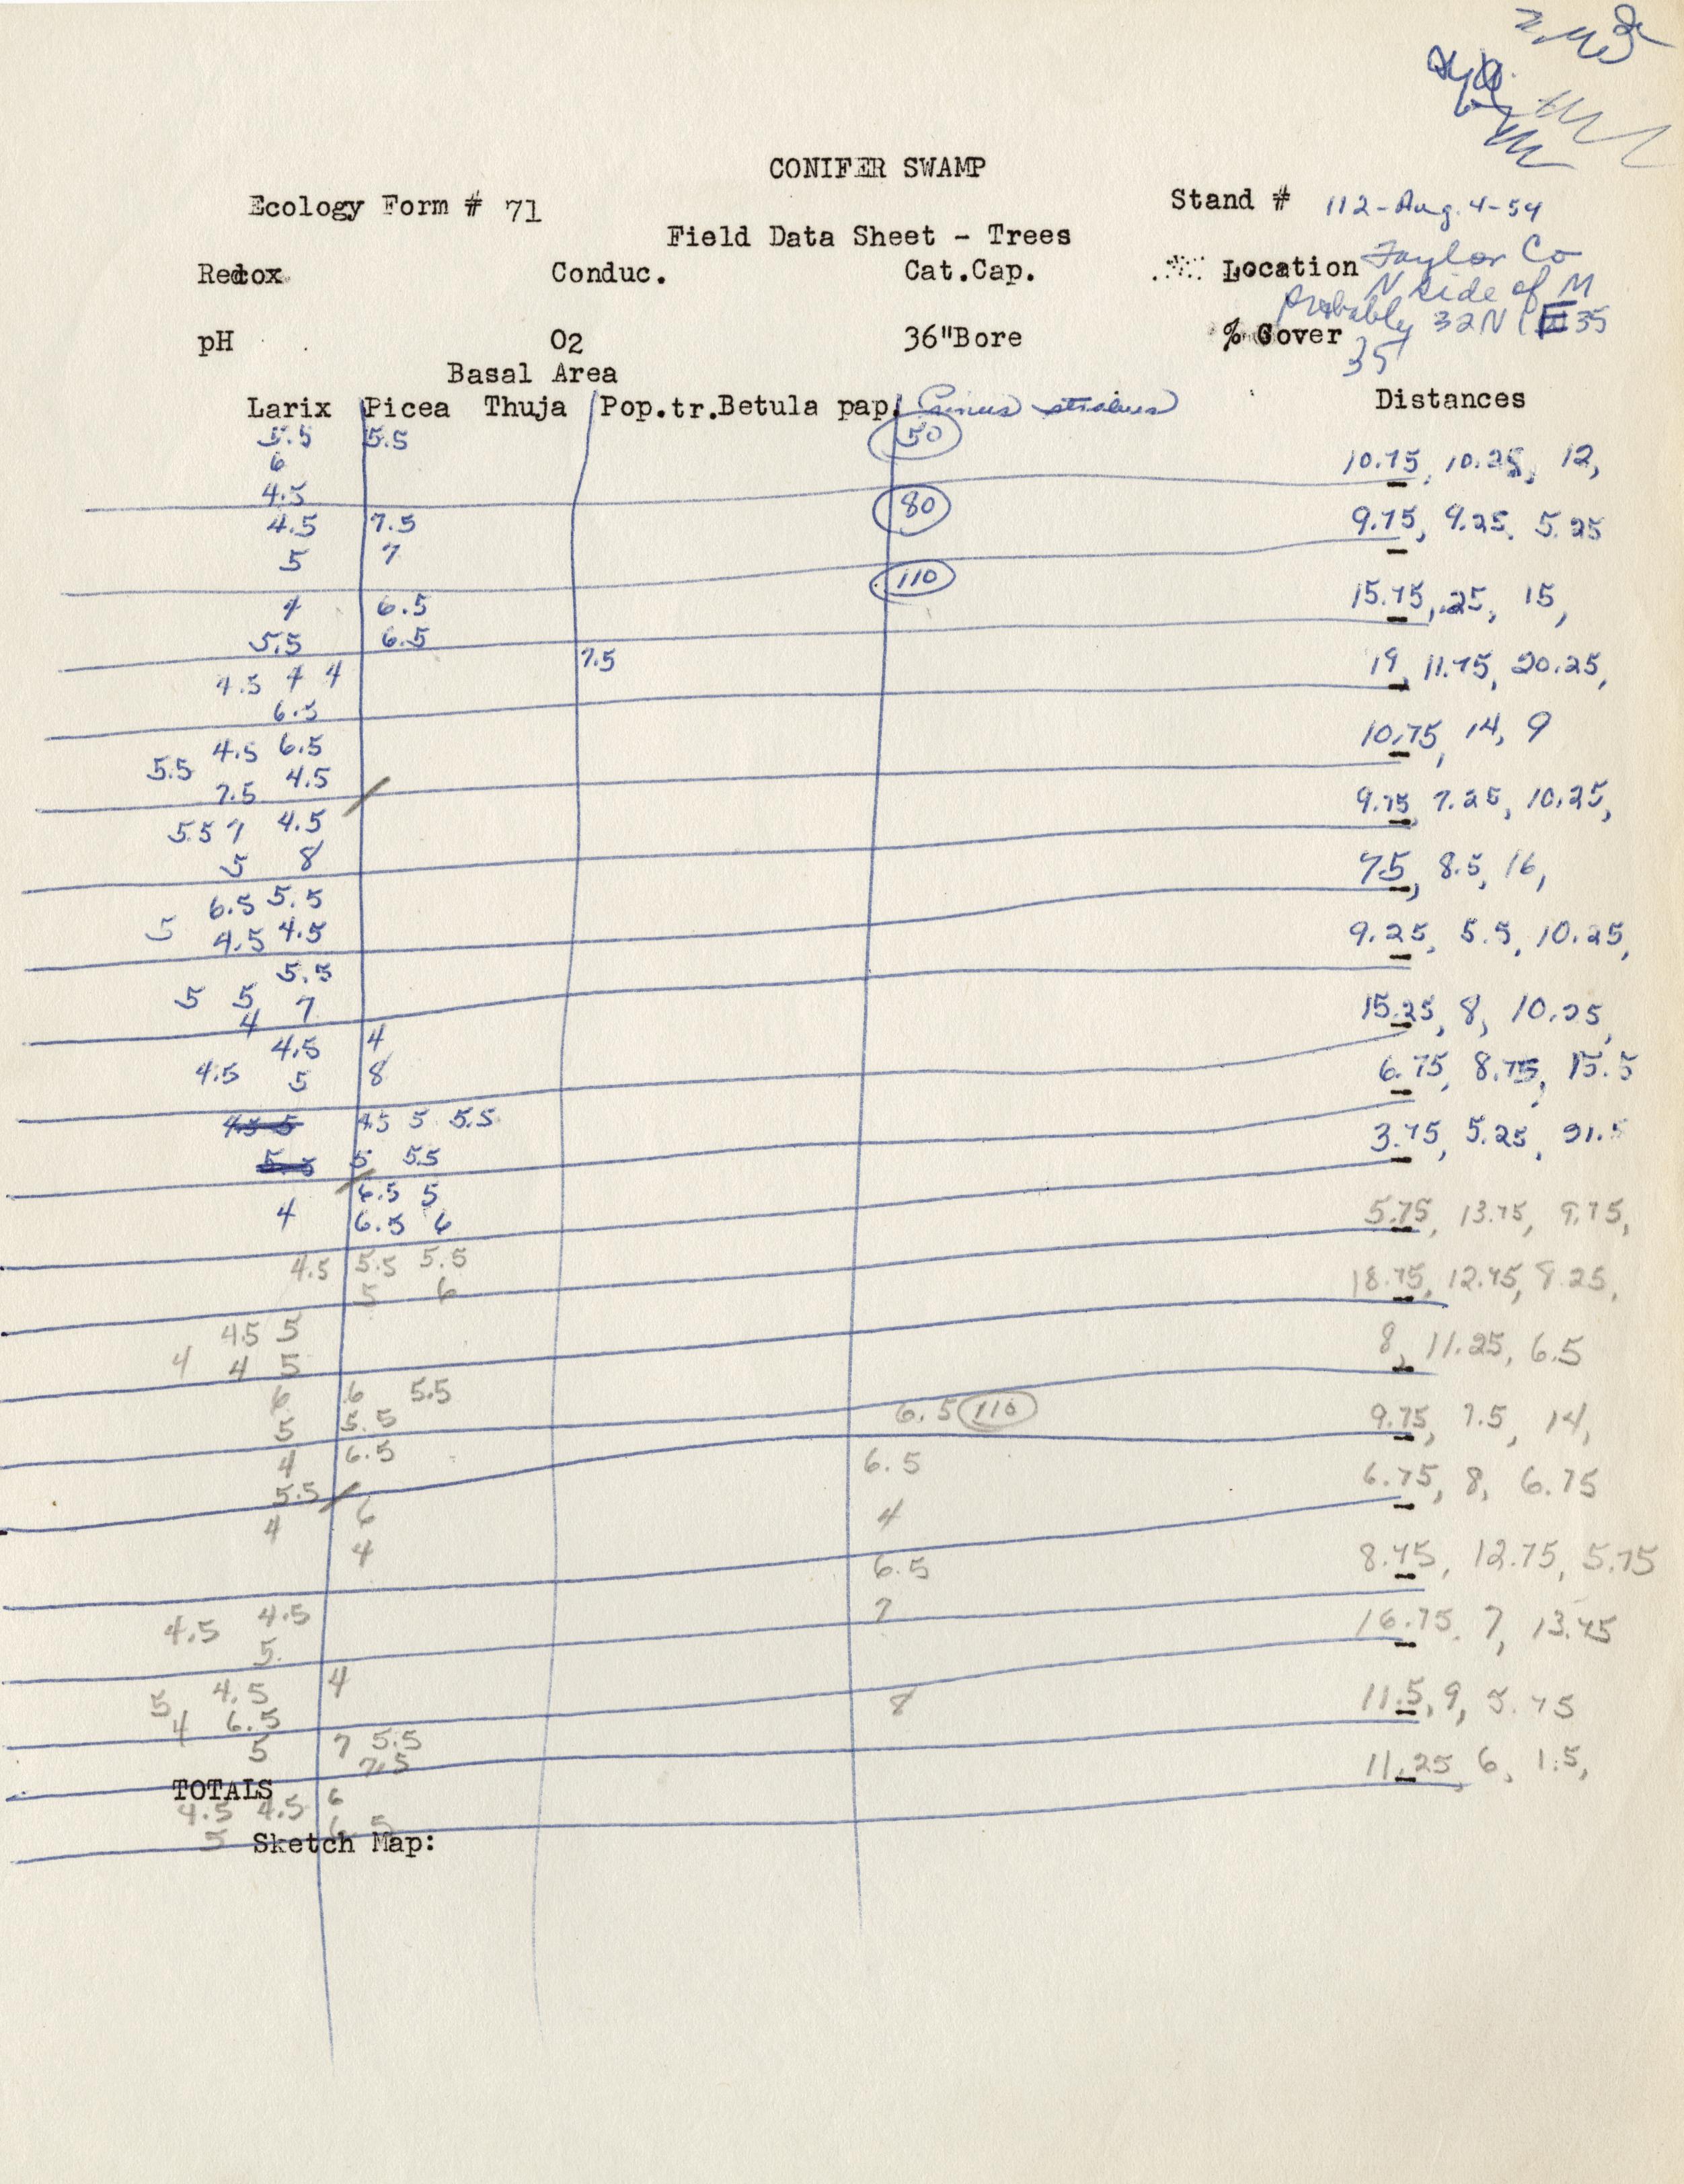 CONIFER SWAMP
Ecology Form # 71 Stand # 112-Aug. 4-54
Field Data Sheet - Trees
Redox Conduc. Cat.Cap. Location Taylor Co
N side of M
probably 32N 1 E 35
pH O2 36"Bore % Cover 35
Basal Area
Larix Picea Thuja Pop.tr. Betula pap. Pinus strobus Distances
5.5 5.5 50
6 10.75, 10.25, 12,
4.5 80
4.5 7.5 9.75, 9.25, 5.25
5 7
110
4 6.5 15.75, .25, 15,
5.5 6.5
7.5 19, 11.75, 20.25,
4.5 4 4
6.5
4.5 6.5 10.75, 14, 9
5.5 4.5
7.5 9.75, 7.25, 10.25,
5.5 7 4.5
5 8 7.5, 8.5, 16,
6.5 5.5
5 4.5 4.5 9.25, 5.5, 10.25,
5.5
5 5 7 15.25, 8, 10.25,
4
4.5 4
4.5 5 8 6.75, 8.75, 15.5
4.5 5 4.5 5 5.5 3.75, 5.25, 21.5
5.5 5 5.5
6.5 5
4 6.5 6 5.75, 13.75, 9.75,
4.5 5.5 5.5
5 6 18.75, 12.75, 8.25,
4.5 5
4 4 5 8, 11.25, 6.5
6 6 5.5
5 5.5 6.5 110 9.75, 7.5, 14,
4 6.5 6.5
5.5 6.75, 8, 6.75
4 6 4
4 6.5 8.75, 12.75, 5.75
4.5 4.5 7
5 16.75, 7, 13.75
4
5 4.5 8 11.5, 9, 5.75
4 6.5
5 7 5.5
7.5 11.25, 6, 1.5,
TOTALS 6
4.5 4.5
5 6.5
Sketch Map: